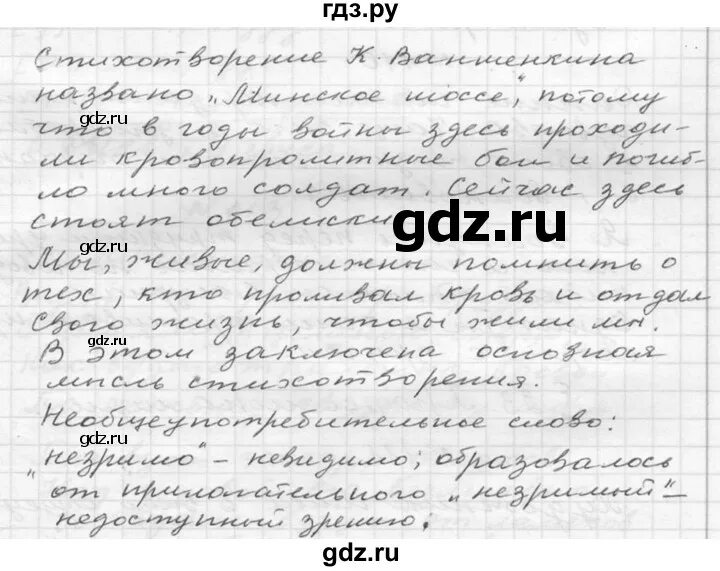 гдз.ру
Стихотворение К. Ваншенкина
названо „Минское шоссе“, потому
что в годы войны здесь проходи-
ли кровопролитные бои и погиб-
ло много солдат. Сейчас здесь
стоят обелиски
gdz.ru
Мы, живые, должны помнить о
тех, кто проливал кровь и отдал
свою жизнь, чтобы жили мы.
gdz.ru
gdz.ru
В этом заключена основная
мысль стихотворения.
Необщеупотребительное слово:
gdz.ru
„незримо“ – невидимо; образовалось
от прилагательного „незримый“ –
недоступный зрению;
gdz.ru